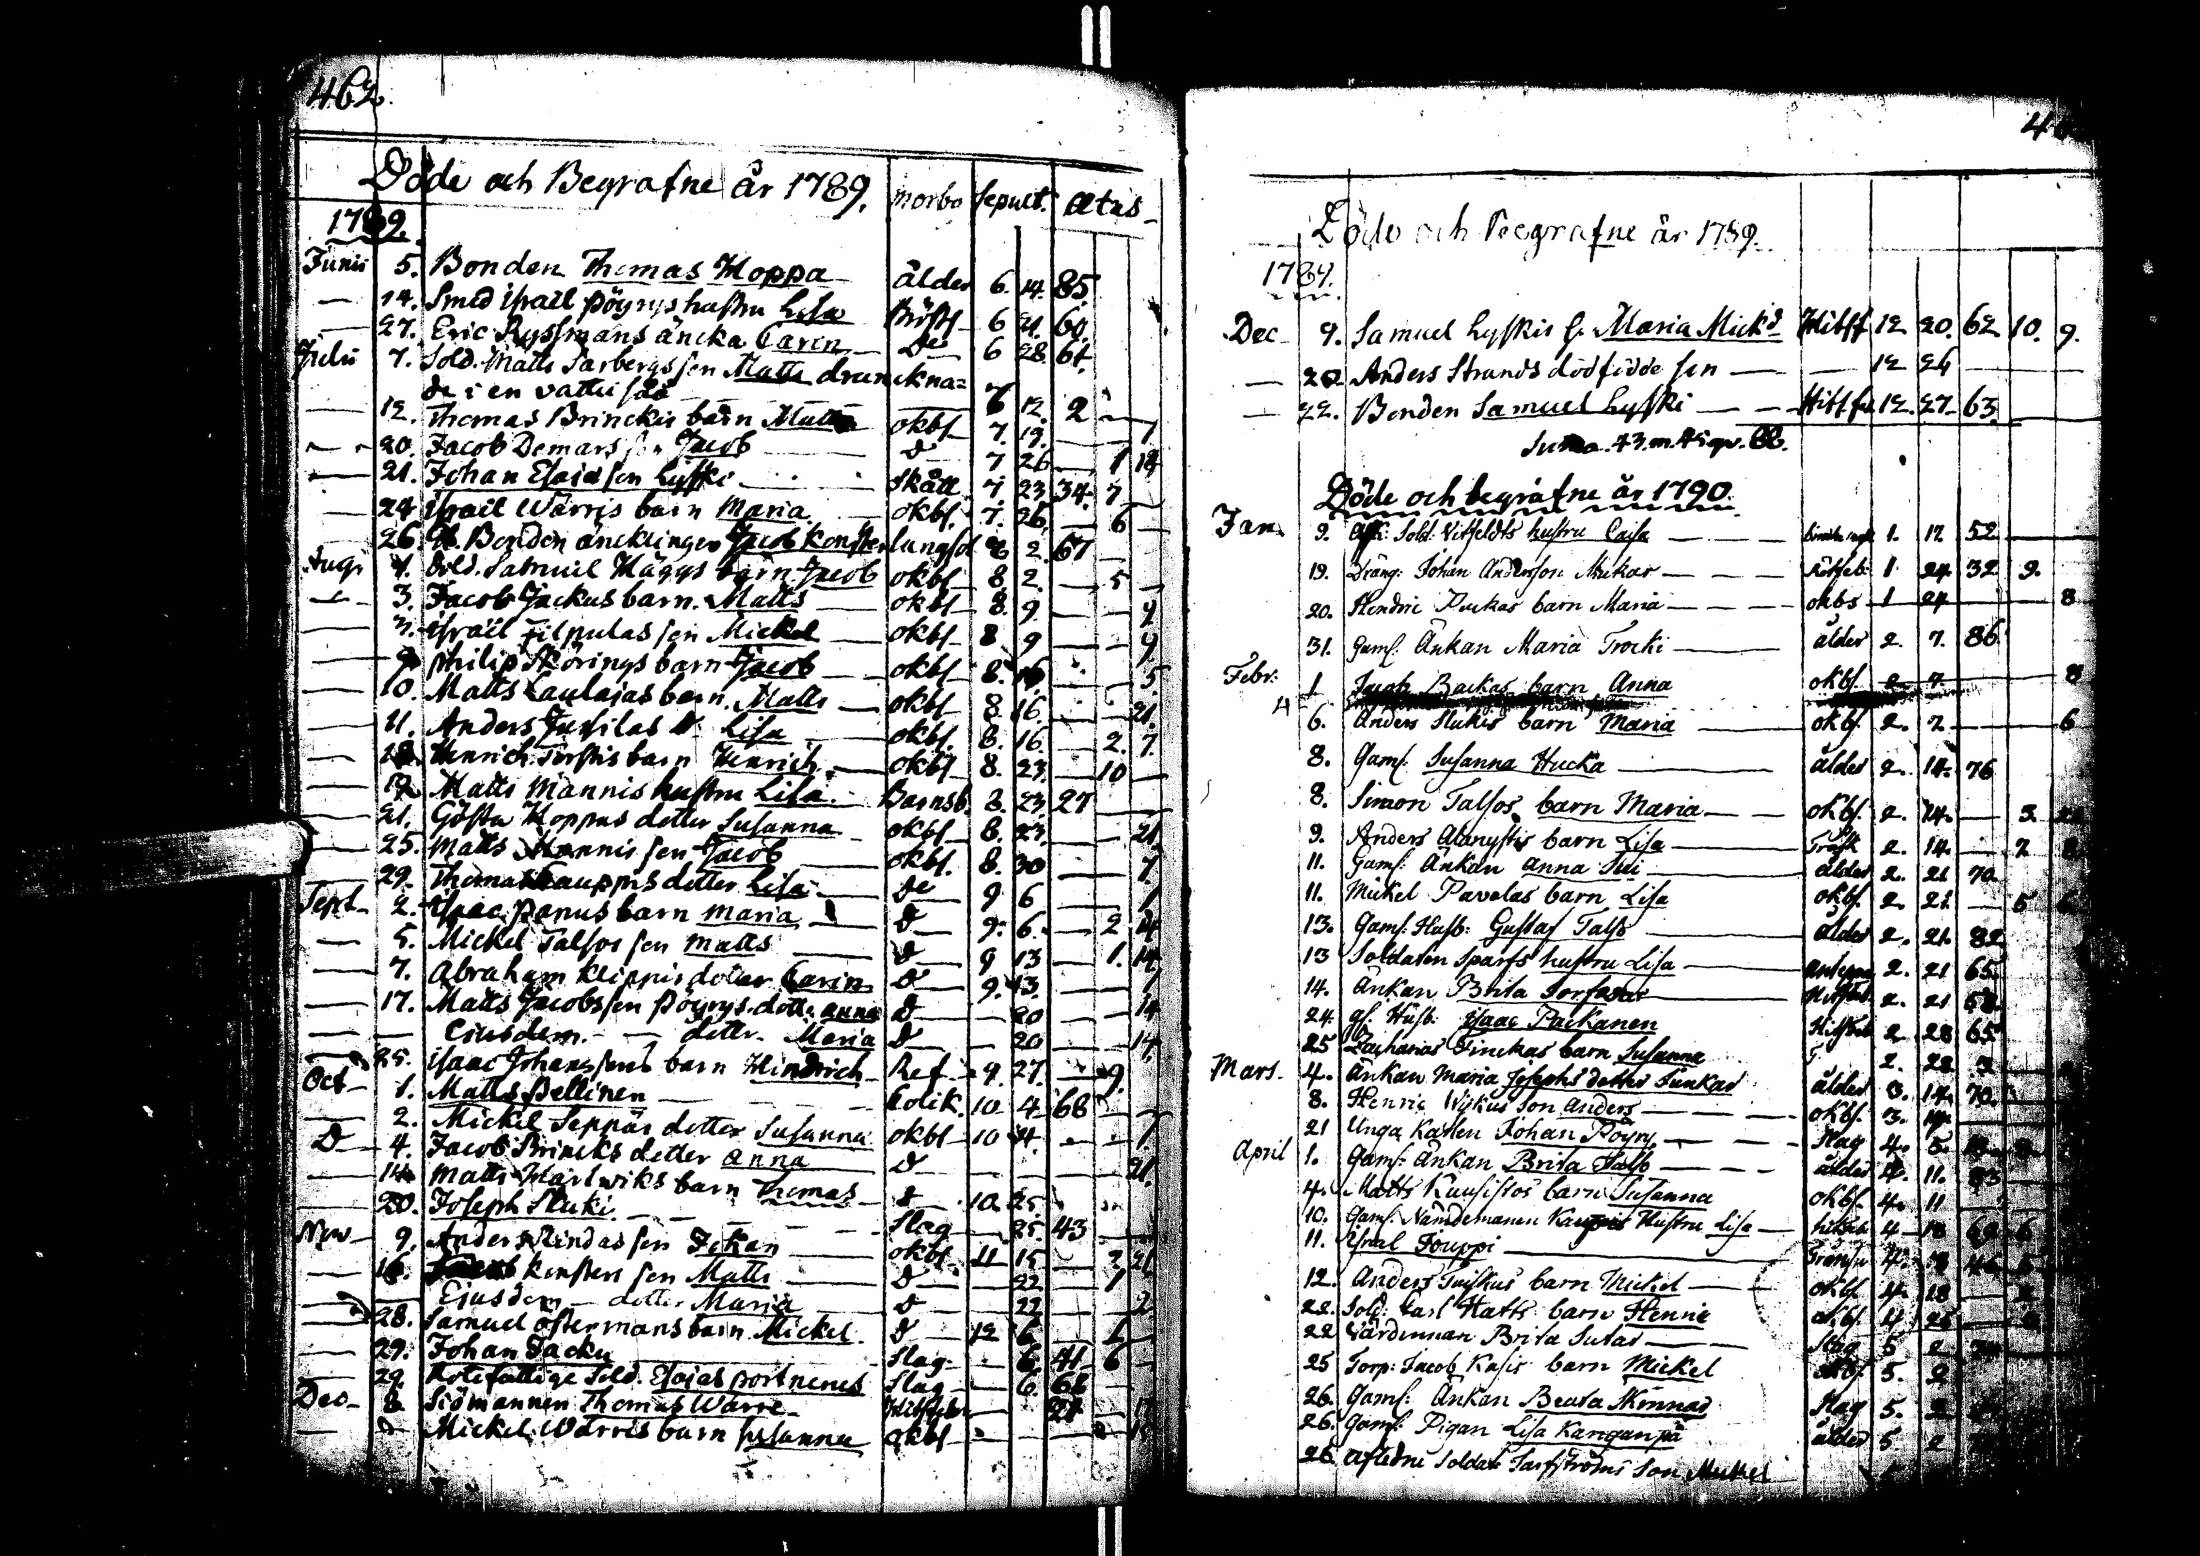 462
Döde och Begrafne år 1789. morbo sepult. ætas
1789.
Junii 5. Bonden Thomas Hoppa ålder 6. 14. 85.
14. Smed Israel Pöyrys hustru Lisa 6 21. 60.
27. Eric Ryssmans äncka Carin Do 6 28. 64.
Julii 7. Sold. Matts Sarbergs son Matts drunckna=
de i en vattu 7 12. 2
12. Thomas Brinckis barn Matts okbf 7. 19. 7
20. Jacob Demars son Jacob D 7 26 1 14
21. Johan Esaiæson Lyski Skått 7. 23 34. 7
24 Israel Warris barn Maria okbf. 7. 26. 6
26. Gl. Bonden äncklingen Jacob Konster lungsot 8 2. 67
Augi 1. Sold. Samuel Häggs barn Jacob okbf 8 2. 5
3. Jacob Jackus barn Matts okbf 8. 9.
3. Israel Filpulas son Mickel okbf 8 9 9
9 Philip Skörings barn Jacob okbf 8. 16 5.
10. Matts Laulajas barn. Matts okbf 8. 16. 21.
11. Anders Jussilas Lisa okbf. 8. 16. 2. 7.
Henrich barn Henrich okbf 8. 23. 10
17 Matts Mannis hustru Lisa Barnsb. 8. 23. 27
21. Gösta Hoppus dotter Susanna okbf 8. 23. 21.
25. Matts Mannis son Jacob okbf. 8. 30 7
29. Thomas Kauppis dotter Lisa Do 9 6 1
Sept 2. Isaac Panus barn Maria D 9. 6. 2 14
5. Mickel Talsos son Matts D 9 13 1. 14.
7. Abraham Klippis dotter Carin D 9. 13. 7
17. Matts Jacobsson Pöyrys dotter Anna D 20 14
Ejusdem dotter Maria D 20 14.
25. Isaac Johanssons barn Hindrich Ref 9. 27. 9.
Oct 1. Matts Pellinen Colik. 10 4 68
2. Mickel Seppäs dotter Susanna okbf 10 4. 7
D 4. Jacob Brincks dotter Anna D 21.
14 Matts Hartwiks barn Thomas D 10 25.
20. Joseph Sluki Slag 25. 43
Nov 9. Anders Rindas son Johan okbf 11 15 2 21
16. Konsters son Matts D 22 1
Ejusdem dotter Maria D 22 2.
28. Samuel Östermans barn Mickel D 12 6 1
29. Johan Jacku Slag 6. 41 6
29. Rotefattige Sold. Esaias Portnenes Slag 6. 68
Dec 8. Siömannen Thomas Warre 21
D Mickel Warris barn Susanna okbf
Döde och Begrafne år 1789.
1789.
Dec 9. Samuel Lyskis h. Maria Mickd Hitsf 12 20. 62 10. 9.
20 Anders Strands dödfödde son 12 26
22. Bonden Samuel Lyski Hitsf 12. 27. 63.
Suma. 43. m. 45 qv. 88.
Döde och begrafne år 1790.
Jan. 9. Afsk. Sold. Vitfeldts hustru Caisa 1. 17 52
19. Dräng. Johan Andersson Mickar Rötfeb: 1 24 32 9.
20. Hendric Puckas barn Maria okbs 1 24 8
31. Gaml. Änkan Maria Trocki ålder 2. 7. 86
Febr. 1 Jacob Backas barn Anna okbf. 2 7 8
6. Anders Slukis barn Maria okbf. 2. 7 6
8. Gaml. Susanna Hucka ålder 2. 14. 76
8. Simon Talsos barn Maria okbf. 2. 14. 3
9. Anders barn Lisa Tråsk 2. 14. 7
11. Gaml: Änkan Anna ålder 2. 21 70
11. Mickel Pavolas barn Lisa okbf. 2. 21 5
13. Gaml: Husb: Gustaf Talso ålder 2. 21. 82
13 Soldaten Sparfs hustru Lisa 2. 21 65.
14. Änkan Brita 2. 21
24. gl. Husb: Isaac Packanen 2 28 65
25 Zacharias Finckas barn Susanna 2. 28
Mars. 4. Änkan Maria Josephs dotter ålder 3. 14. 70.
8. Henric son Anders okbf. 3.
21 Unga Karlen Johan Pöyry Slag 4. 5
April 1. Gaml: Änkan Brita Talso ålder 4. 11. 83
4. Matts Kuusistos barn Susanna okbf. 4. 11
10. Gaml. Nämdemannen Kauppis Hustru Lisa 4 18 6
11. Jouppi
12. Anders barn Mickel okbf 4. 18
22. Sold: Carl Hatts barn Henric okbf. 4 25
22 Värdinnan Brita Slag 5 2
25 Torp: Jacob Kasis barn Mickel okbf. 5. 2
26. Gaml: Änkan Beata Slag 5. 2
26. Gaml: Pigan Lisa Kanganpä ålder 5 2
26 Afledne Soldat son